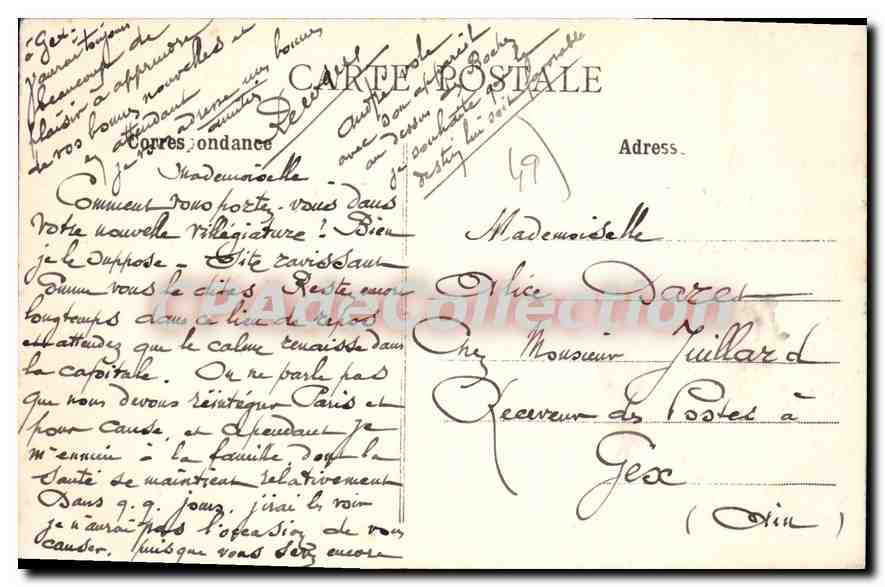 CARTE POSTALE
Correspondance
Adresse
Mademoiselle
Comment vous portez-vous dans
votre nouvelle villégiature ? Bien
je le suppose - Site ravissant
comme vous le dites Restez encor
longtemps dans ce lieu de repos
et attendez que le calme renaisse dans
la capitale. On ne parle pas
que nous devons réintégrer Paris et
pour cause, et cependant je
m'ennuie à la famille dont la
santé se maintient relativement
Dans q.q. jours, j'irai les voir
je n'aurai pas l'occasion de vous
causer, puisque vous serez encore
à Gex.
J'aurai toujours
beaucoup de
plaisir à apprendre
de vos bonnes nouvelles et
en attendant
je vous adresse mes bonnes
amitiés
André vole
avec son appareil
au dessus des Boches
je souhaite que le
destin lui soit favorable
49
Mademoiselle
Alice Daret
Chez Monsieur Juillard
Receveur des Postes à
Gex
(Ain)
CPA de Collection